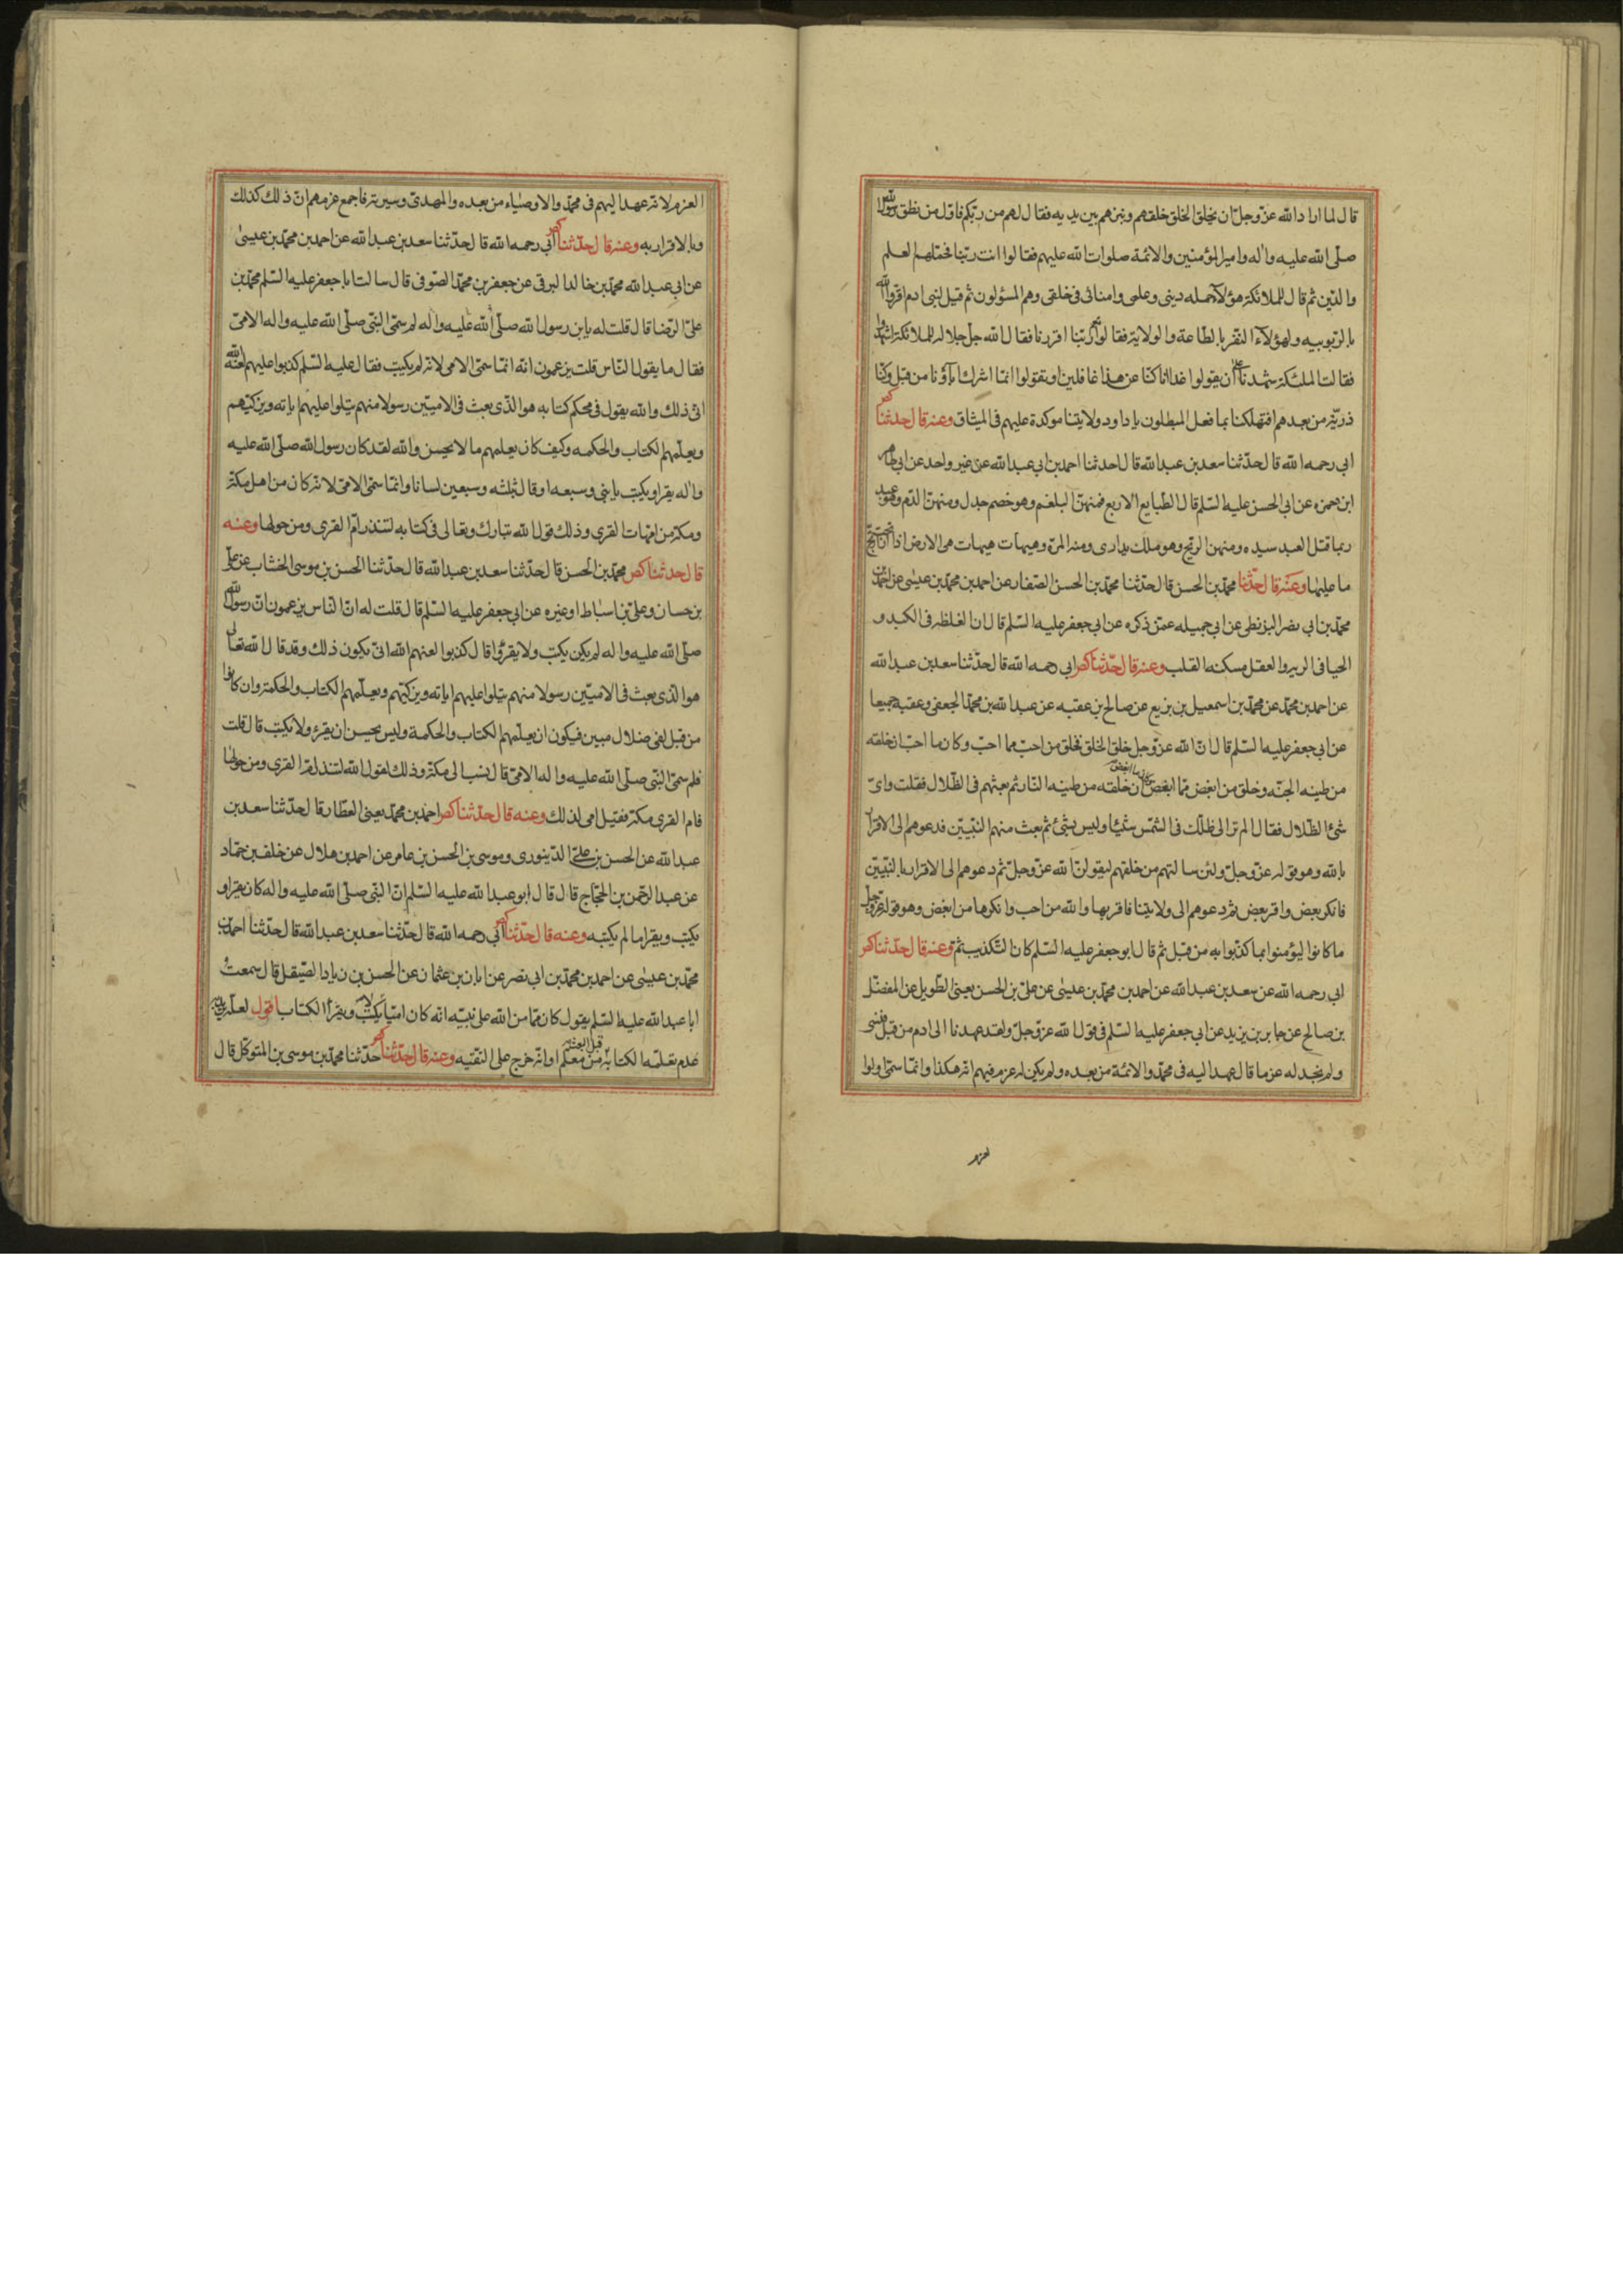 قال لما اراد الله عز وجل ان يخلق الخلق خلقهم ونثرهم بين يديه فقال لهم من ربكم فاول من نطق رسول الله
صلى الله عليه واله وامير المؤمنين والائمة صلوات الله عليهم فقالوا انت ربنا فحملهم العلم
والدين ثم قال للملائكة هؤلآء حملة دينى وعلمى وامنائى فى خلقى وهم المسئولون ثم قيل لبنى ادم اقروا لله
بالربوبيه ولهؤلآء النفر بالطاعة والولاية فقالوا نعم ربنا اقررنا فقال الله جل جلاله للملائكة اشهدوا
فقالت الملئكة شهدنا على ان يقولوا غدا انا كنا عن هذا غافلين او تقولوا انما اشرك اباؤنا من قبل وكنا
ذرية من بعدهم افتهلكنا بما فعل المبطلون يا داود ولايتنا موكدة عليهم فى الميثاق وعنه قال حدثنا كصر
ابى رحمه الله قال حدثنا سعد بن عبد الله قال حدثنا احمد بن ابى عبد الله عن غير واحد عن ابى طاهر
ابن حمزه عن ابى الحسن عليه السلم قال الطبايع الاربع فمنهن البلغم وهو خصم جدل ومنهن الدم وهو عبد
ربما قتل العبد سيده ومنهن الريح وهو ملك يدارى ومنه المرة وهيهات هيهات هى الارض اذا ارتجت ارتج
ما عليها وعنه قال حدثنا محمد بن الحسن قال حدثنا محمد بن الحسن الصفار عن احمد بن محمد بن عيسى عن احمد بن
محمد بن ابى نصر البزنطى عن ابى جميله عمن ذكره عن ابى جعفر عليه السلم قال ان الغلظه فى الكبد و
الحيا فى الريه والعقل مسكنه القلب وعنه قال حدثنا كصر ابى رحمه الله قال حدثنا سعد بن عبد الله
عن احمد بن محمد عن محمد بن اسمعيل بن بزيع عن صالح بن عقبه عن عبد الله بن محمد الجعفى وعقبه جميعا
عن ابى جعفر عليه السلم قال ان الله عز وجل خلق الخلق فخلق من احب مما احب وكان ما احب ان خلقه
من طينه الجنه وخلق من ابغض مما ابغض وكان ما ابغض ان خلقه من طينه النار ثم بعثهم فى الظلال فقلت واى
شئ الظلال فقال الم تر الى ظلك فى الشمس شيئا وليس بشئ ثم بعث منهم النبيين فدعوهم الى الاقرار
بالله وهو قوله عز وجل ولئن سالتهم من خلقهم ليقولن الله عز وجل ثم دعوهم الى الاقرار بالنبيين
فانكر بعض واقر بعض ثم دعوهم الى ولايتنا فاقر بها والله من احب وانكرها من ابغض وهو قوله عز وجل
ما كانوا ليؤمنوا بما كذبوا به من قبل ثم قال ابو جعفر عليه السلم كان التكذيب ثم وعنه قال حدثنا كصر
ابى رحمه الله عن سعد بن عبد الله عن احمد بن محمد بن عيسى عن على بن الحسن يعنى الطويل عن المفضل
بن صالح عن جابر بن يزيد عن ابى جعفر عليه السلم فى قول الله عز وجل ولقد عهدنا الى ادم من قبل فنسى
ولم نجد له عزما قال عهد اليه فى محمد والائمة من بعده ولم يكن له عزم فيهم انه هكذا وانما سمى اولوا
العزم
العزم لانه عهد اليهم فى محمد والاوصياء من بعده والمهدى وسيرته فاجمع عزمهم ان ذلك كذلك
وبالاقرار به وعنه قال حدثنا كصر ابى رحمه الله قال حدثنا سعد بن عبد الله عن احمد بن محمد بن عيسى
عن ابى عبد الله محمد بن خالد البرقى عن جعفر بن محمد الصوفى قال سالت ابا جعفر عليه السلم محمد بن
على الرضا قال قلت له يا بن رسول الله صلى الله عليه واله لم سمى النبى صلى الله عليه واله الامى
فقال ما يقول الناس قلت يزعمون انه انما سمى الامى لانه لم يكتب فقال عليه السلم كذبوا عليهم لعنه الله
انى ذلك والله يقول فى محكم كتابه هو الذى بعث فى الاميين رسولا منهم يتلوا عليهم اياته ويزكيهم
ويعلمهم الكتاب والحكمه وكيف كان يعلمهم ما لا يحسن والله لقد كان رسول الله صلى الله عليه
واله يقرا ويكتب باثنى وسبعه او قال بثلثه وسبعين لسانا وانما سمى الامى لانه كان من اهل مكة
ومكة من امهات القرى وذلك قول الله تبارك وتعالى فى كتابه لتنذر ام القرى ومن حولها وعنه
قال حدثنا كصر محمد بن الحسن قال حدثنا سعد بن عبد الله قال حدثنا الحسن بن موسى الخشاب عن على
بن حسان وعلى بن اسباط او غيره عن ابى جعفر عليه السلم قال قلت له ان الناس يزعمون ان رسول الله
صلى الله عليه واله لم يكن يكتب ولا يقرؤا قال كذبوا لعنهم الله انى يكون ذلك وقد قال الله تعالى
هو الذى بعث فى الاميين رسولا منهم يتلوا عليهم اياته ويزكيهم ويعلمهم الكتاب والحكمة وان كانوا
من قبل لفى ضلال مبين فيكون ان يعلمهم الكتاب والحكمة وليس يحسن ان يقرء ولا يكتب قال قلت
فلم سمى النبى صلى الله عليه واله الامى قال نسب الى مكة وذلك لقول الله لتنذر ام القرى ومن حولها
فام القرى مكة فقيل امى لذلك وعنه قال حدثنا كصر احمد بن محمد يعنى العطار قال حدثنا سعد بن
عبد الله عن الحسن بن على الدينورى وموسى بن الحسن بن عامر عن احمد بن هلال عن خلف بن حماد
عن عبد الرحمن بن الحجاج قال قال ابو عبد الله عليه السلم ان النبى صلى الله عليه واله كان يقرا و
يكتب ويقرا ما لم يكتبه وعنه قال حدثنا كصر ابى رحمه الله قال حدثنا سعد بن عبد الله قال حدثنا احمد بن
محمد بن عيسى عن احمد بن محمد بن ابى نصر عن ابان بن عثمان عن الحسن بن زياد الصيقل قال سمعت
ابا عبد الله عليه السلم يقول كان مما من الله على نبيه انه كان اميا لا يكتب ويقرأ الكتاب اقول لعله
عدم تعلمه الكتابة من معلم قبل البعثة او انه خرج على التقيه وعنه قال حدثنا كصر حدثنا محمد بن موسى بن المتوكل قال